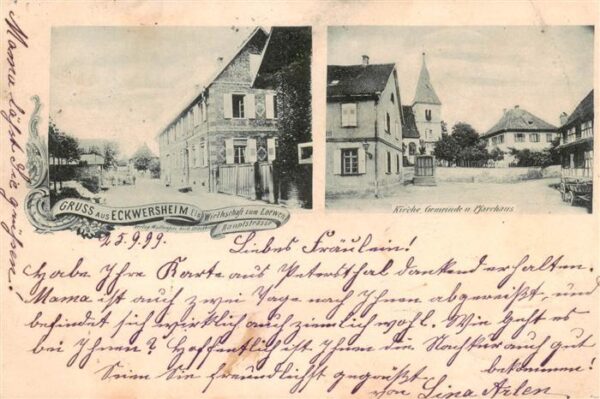 Mama läßt Sie grüßen!
GRUSS AUS ECKWERSHEIM i/E.
Wirthschaft zum Loewen
Hauptstrasse
Kirche, Gemeinde u. Pfarrhaus
25.9.99.
Liebes Fräulein!
Habe Ihre Karte aus Petersthal dankend erhalten.
Mama ist auch zwei Tage nach Ihnen abgereißt, und
befindet sich wirklich auch ziemlich wohl. Wie geht es
bei Ihnen? Hoffentlich ist Ihnen die Nachkur auch gut
bekommen!
Seien Sie freundlichst gegrüßt
von Lina